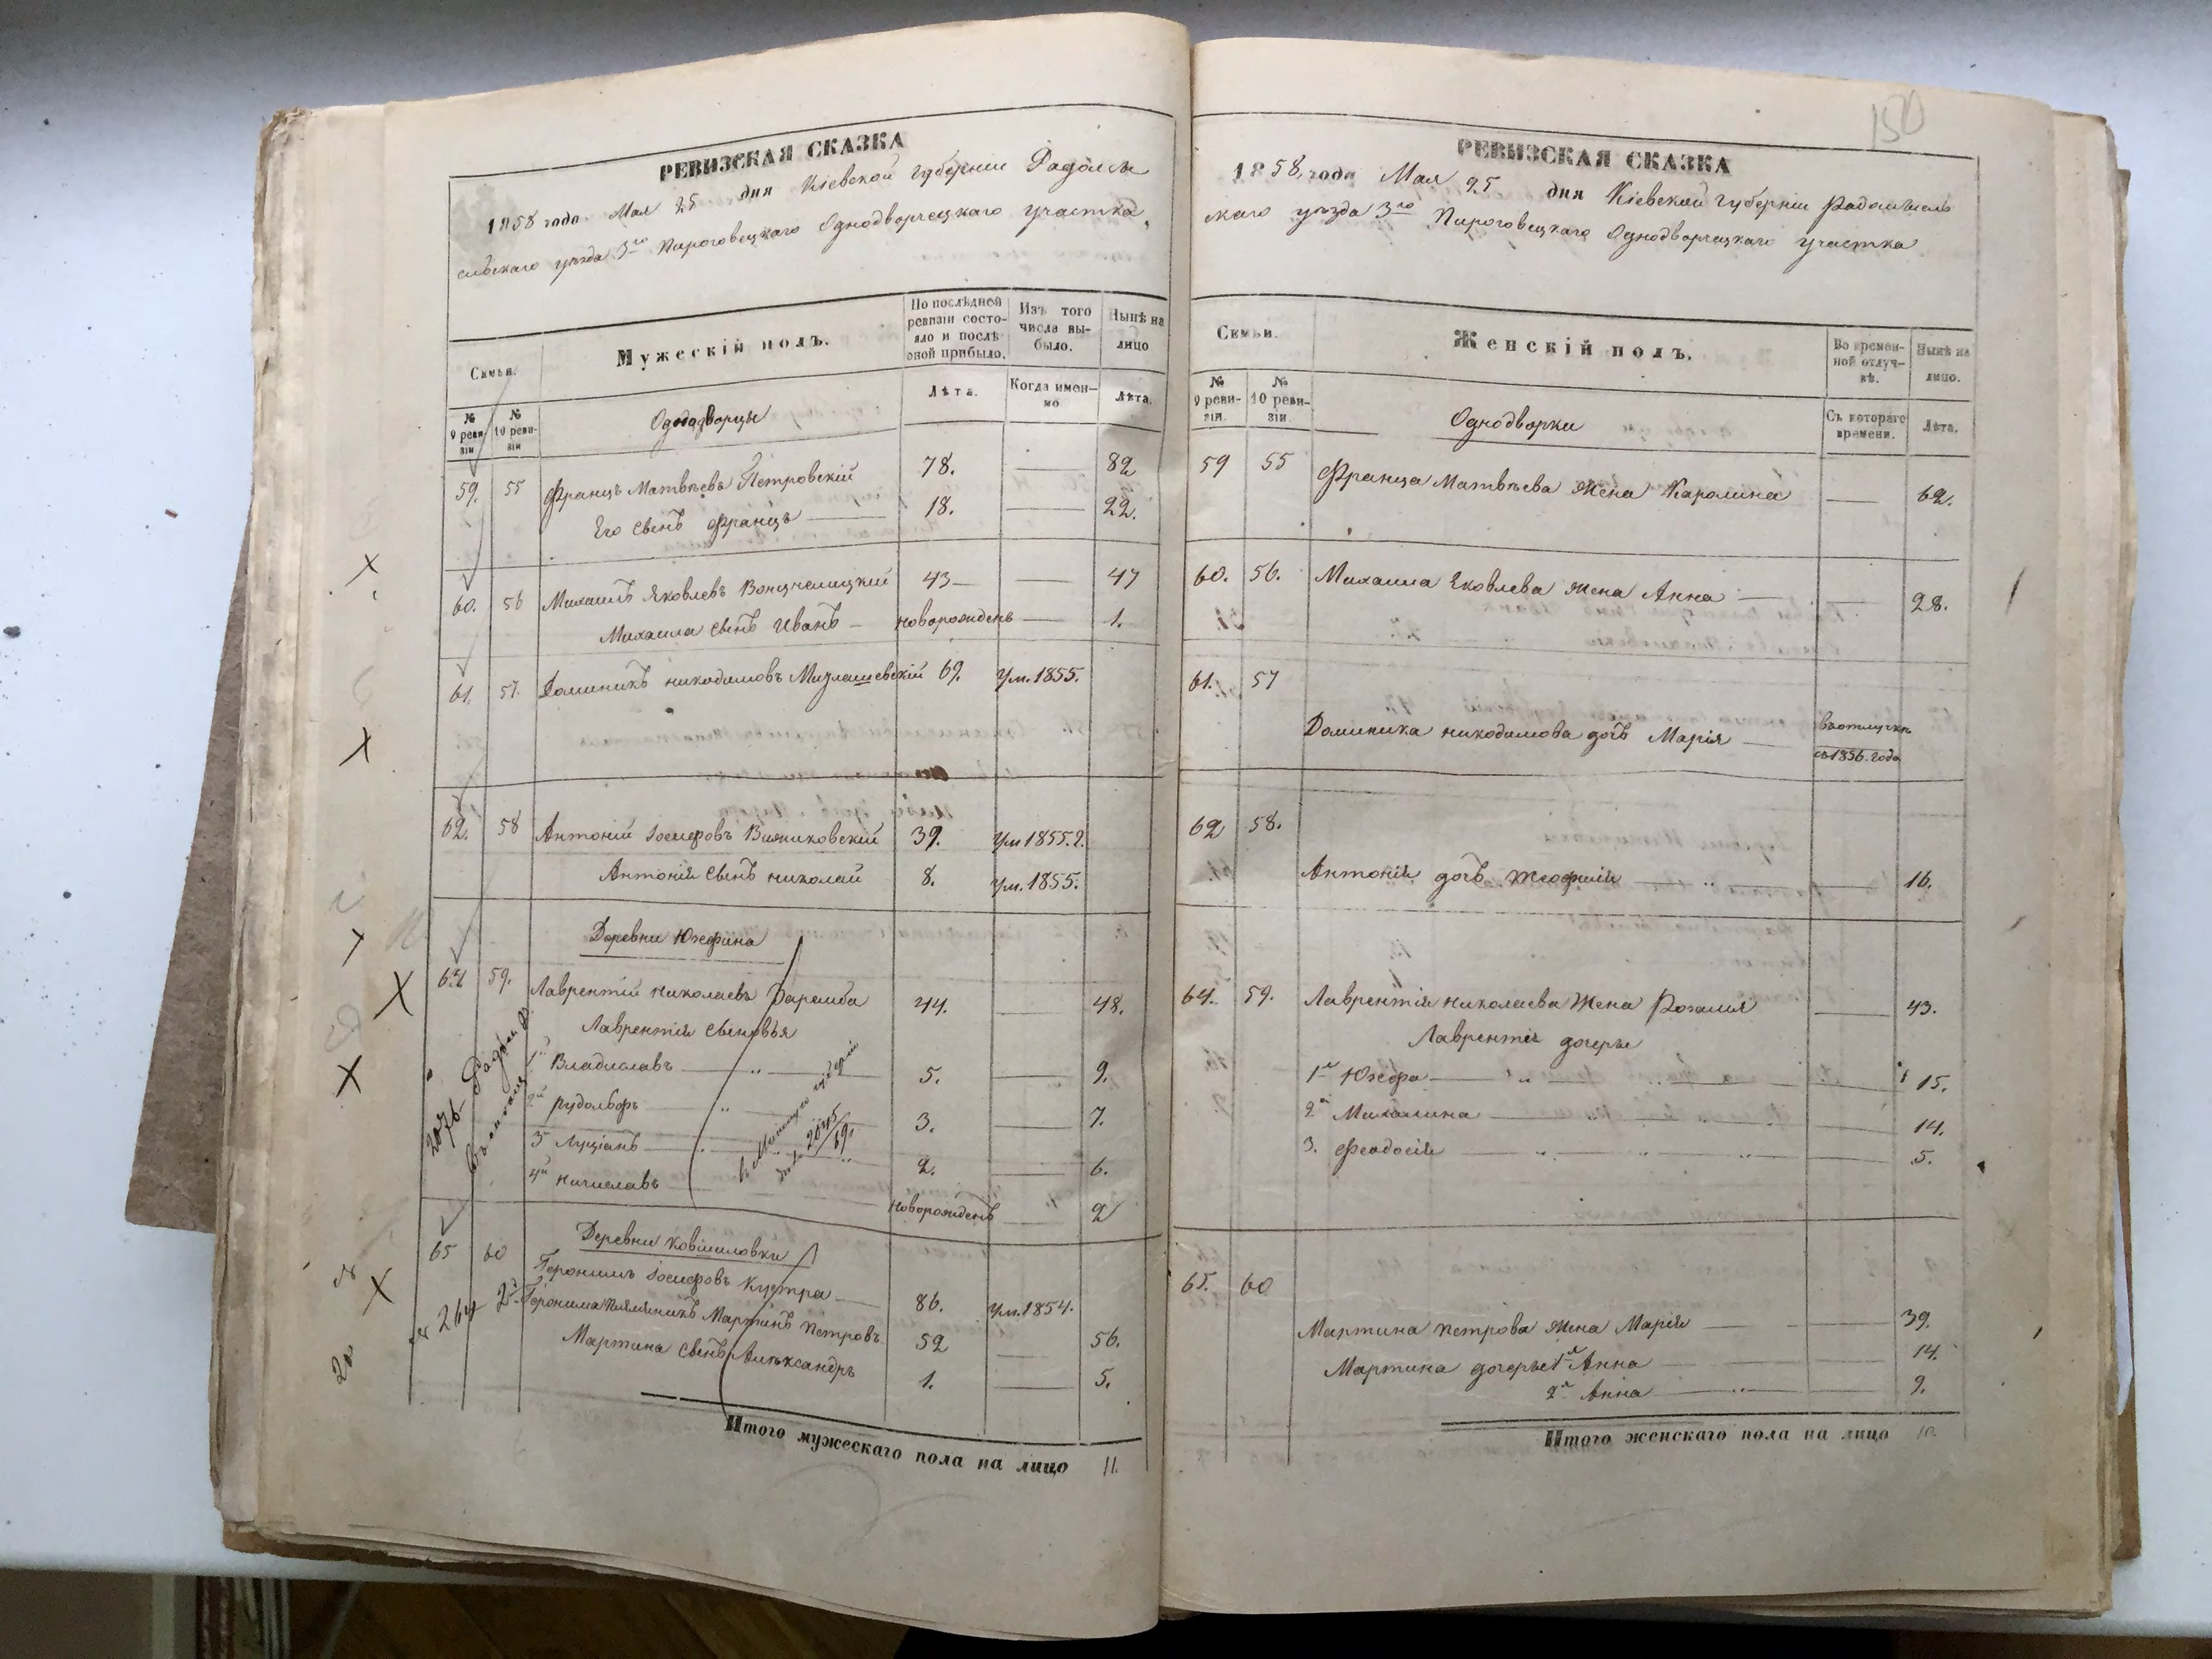 РЕВИЗСКАЯ СКАЗКА
1858 года Мая 25 дня Кіевской губерніи Радомы
сльскаго уѣзда 3го Пироговецкаго Однодворецкаго участка
Семьи.
Мужескій полъ.
По послѣдней ревизіи состояло и послѣ оной прибыло.
Изъ того числа выбыло.
Нынѣ на лицо
№ 9 ревизіи
№ 10 ревизіи
Однодворцы
Лѣта.
Когда именно
Лѣта.
59. 55 Францъ Матвѣевъ Петровскій 78. 82
Его сынъ Францъ 18. 22.
60. 56 Михаилъ Яковлевъ 43 47
Михаила сынъ Иванъ новорожденъ 1.
61. 57. Доминикъ Никодимовъ 69. Ум. 1855.
62. 58 Антоній Іосифовъ 39. Ум 1855.г.
Антонія сынъ Николай 8. Ум. 1855.
Деревни Юзефина
64 59. Лаврентій Николаевъ Заремба 44. 48.
Лаврентія сыновья
1й Владиславъ 5. 9.
2й Рудольфъ 3. 7.
3 Луціанъ 2. 6.
4й новорожденъ 2
2076
Деревни Ковшиловки
65 60 Геронимъ Іосифовъ Кустра 86. Ум. 1854.
Геронима племяникъ Мартинъ Петровъ 52 56.
Мартина сынъ Александръ 1. 5.
264
Итого мужескаго пола на лицо 11.
150
РЕВИЗСКАЯ СКАЗКА
1858 года Мая 25 дня Кіевской губерніи Радомысль
скаго уѣзда 3го Пироговецкаго Однодворецкаго участка
Семьи.
Женскій полъ.
Во временной отлучкѣ.
Нынѣ на лицо.
№ 9 ревизіи.
№ 10 ревизіи.
Однодворки
Съ котораго времени.
Лѣта.
59 55 Франца Матвѣева жена Каролина 62.
60. 56. Михаила Яковлева жена Анна 28.
61. 57
Доминика Никодимова дочь Марія въ отлучкѣ
съ 1856. года
62 58.
Антонія дочь Теофилія 16.
64. 59. Лаврентія Николаева жена Розалия 43.
Лаврентія дочеры
1я Юзефа 15.
2я Михалина 14.
3. Феодосія 5.
65. 60
Мартина Петрова жена Марія 39.
Мартина дочеры 1я Анна 14.
2я Анна 9.
Итого женскаго пола на лицо 10.